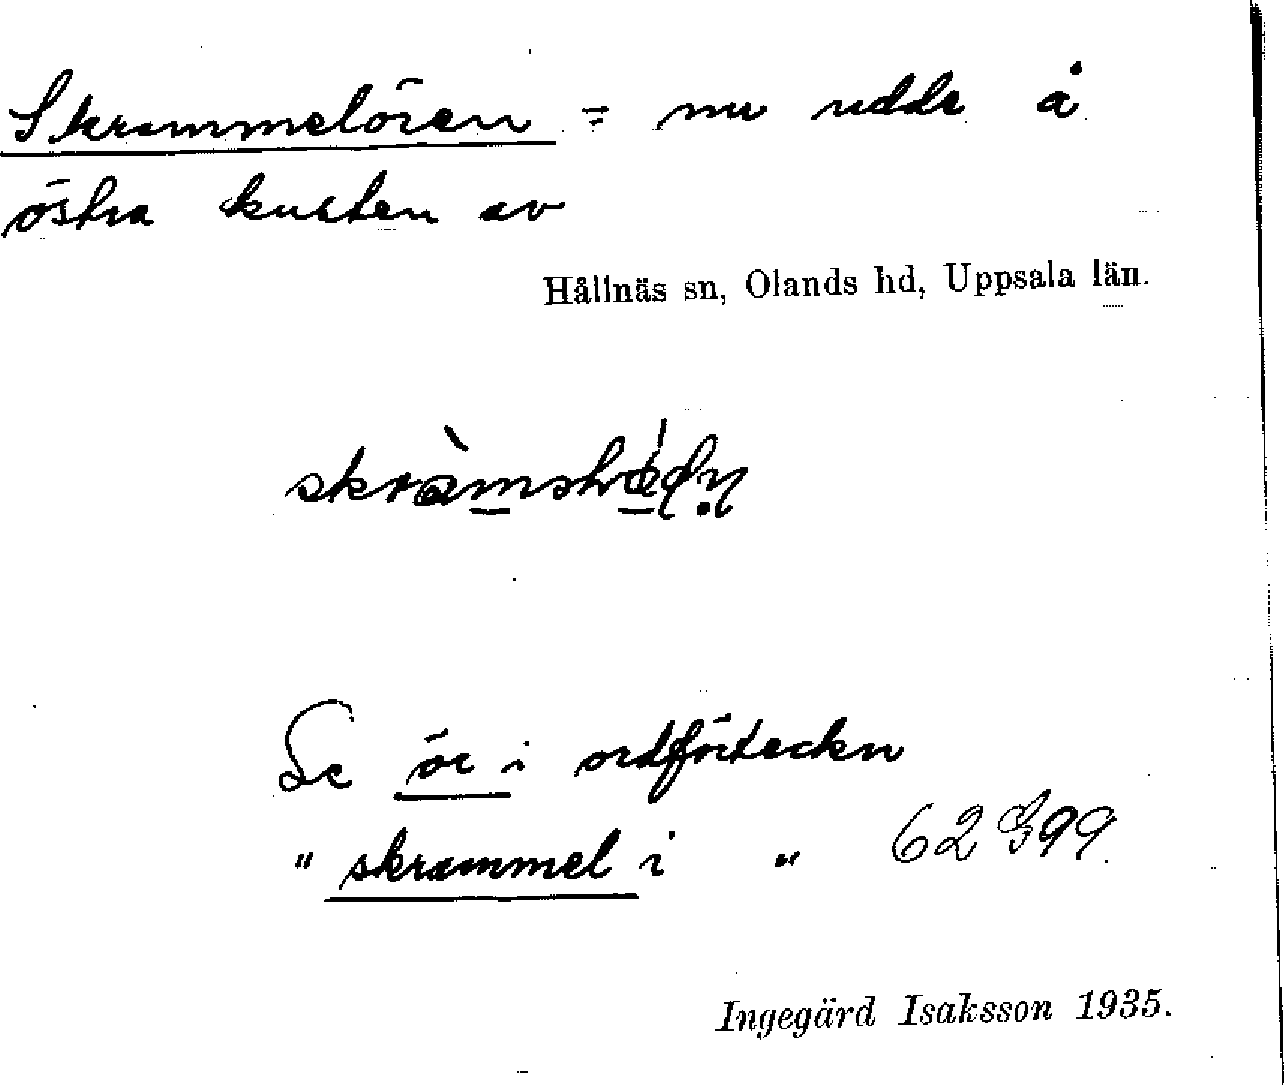 Skrammelören = nu udde å
östra kusten av
Hållnäs sn, Olands hd, Uppsala län.
Se ör i ordförteckn
" skrammel i " 62 G 99
Ingegärd Isaksson 1935.